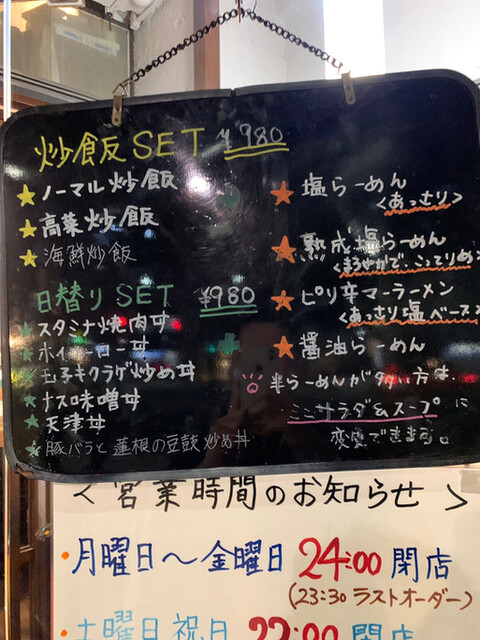 炒飯SET ¥980
★ノーマル炒飯
★高菜炒飯
★海鮮炒飯
日替りSET ¥980
★スタミナ焼肉丼
★ホイコーロー丼
★玉子キクラゲ炒め丼
★ナス味噌丼
★天津丼
★豚バラと蓮根の豆鼓炒め丼
★塩らーめん
<あっさり>
★熟成塩らーめん
<まろやかで、こってりめ>
★ピリ辛マーラーメン
<あっさり塩ベース>
★醤油らーめん
半らーめんが多い方は、
ミニサラダ&スープに
変更できます。
<営業時間のお知らせ>
・月曜日〜金曜日 24:00 閉店
(23:30 ラストオーダー)
・土曜日 祝日 22:00 閉店